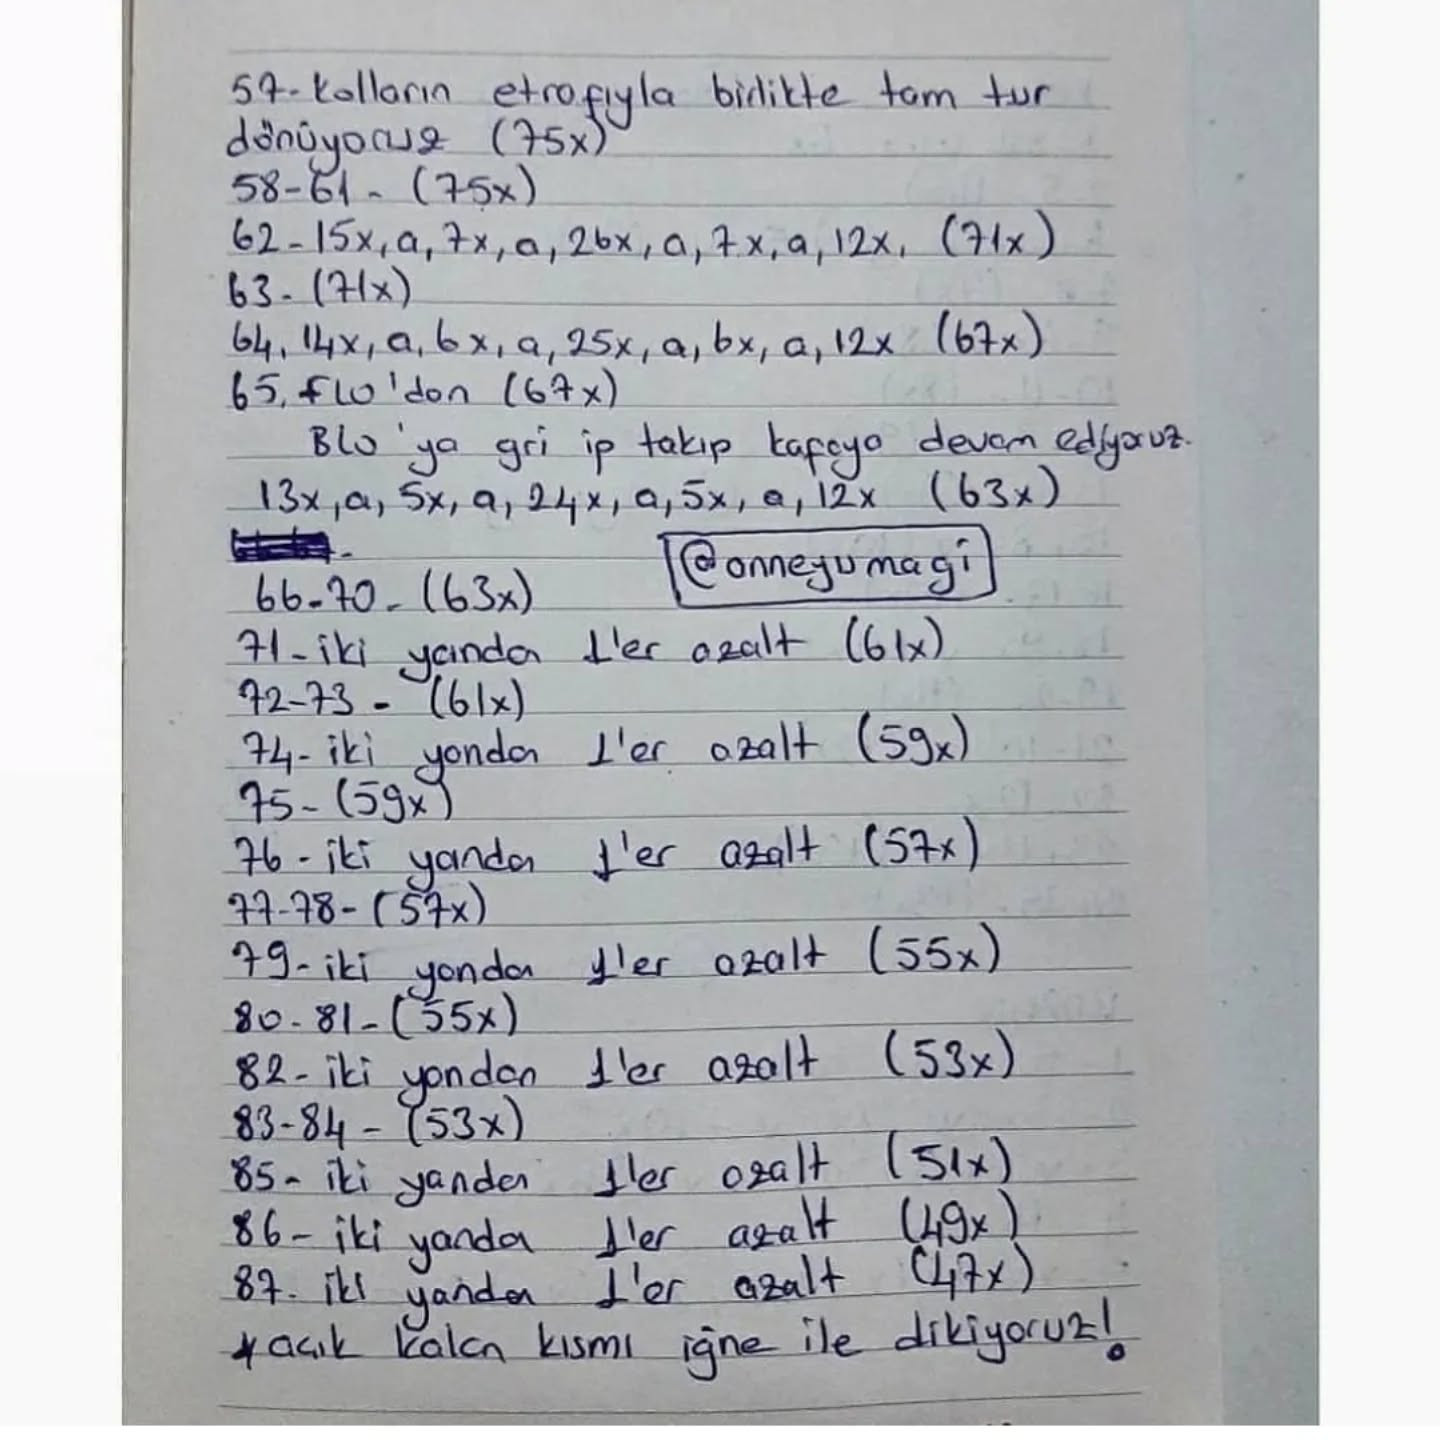 57-Kolların etrafıyla birlikte tam tur
dönüyoruz (75x)
58-61- (75x)
62-15x, a, 7x, a, 26x, a, 7x, a, 12x, (71x)
63- (71x)
64, 14x, a, 6x, a, 25x, a, 6x, a, 12x (67x)
65, flo'dan (67x)
Blo'ya gri ip takıp kafaya devam ediyoruz.
13x, a, 5x, a, 24x, a, 5x, a, 12x (63x)
@anneyumagi
66-70- (63x)
71-iki yandan 1'er azalt (61x)
72-73- (61x)
74-iki yandan 1'er azalt (59x)
75- (59x)
76-iki yandan 1'er azalt (57x)
77-78- (57x)
79-iki yandan 1'er azalt (55x)
80-81- (55x)
82-iki yandan 1'er azalt (53x)
83-84- (53x)
85- iki yandan 1'er azalt (51x)
86- iki yandan 1'er azalt (49x)
87- iki yandan 1'er azalt (47x)
*açık kalan kısmı iğne ile dikiyoruz!